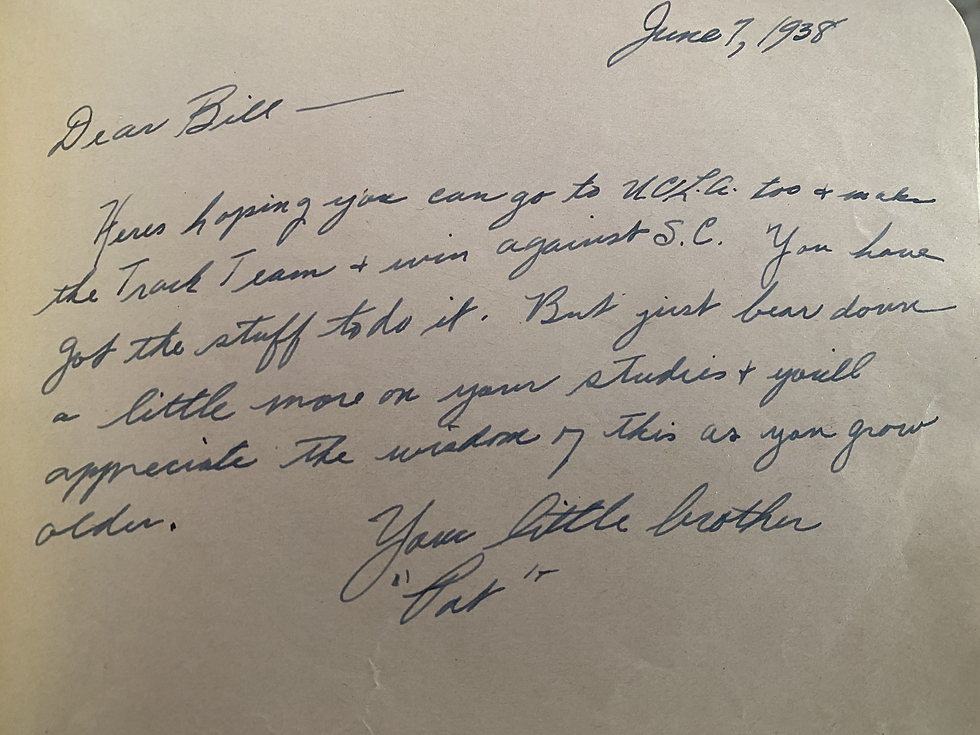 June 7, 1938
Dear Bill —
Heres hoping you can go to U.C.L.A. too & make
the Track Team & win against S.C. You have
got the stuff to do it. But just bear down
a little more on your studies & you'll
appreciate the wisdom of this as you grow
older.
Your little brother
"Pat"